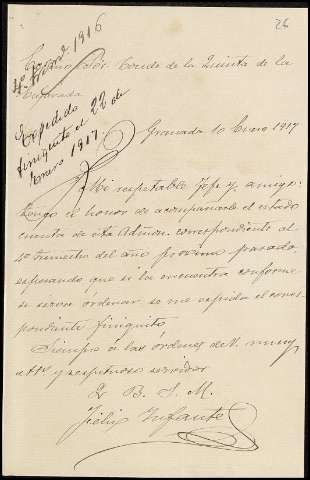 26
4º Trimᵉ 1916
Sor. Conde de la Quinta de la
Enjarada
Expedido
finiquito el 22 de
Enero 1917.
Granada 10 Enero 1917
Mi respetable Jefe y amigo:
tengo el honor de acompañarle el estado
cuenta de esta Admon. correspondiente al
4º trimestre del año próximo pasado
esperando que si la encuentra conforme
se sirva ordenar se me expida el corres
pondiente finiquito,
Siempre a las ordenes de V. muy
y respetuoso servidor
Q. B. S. M.
Felix Infante